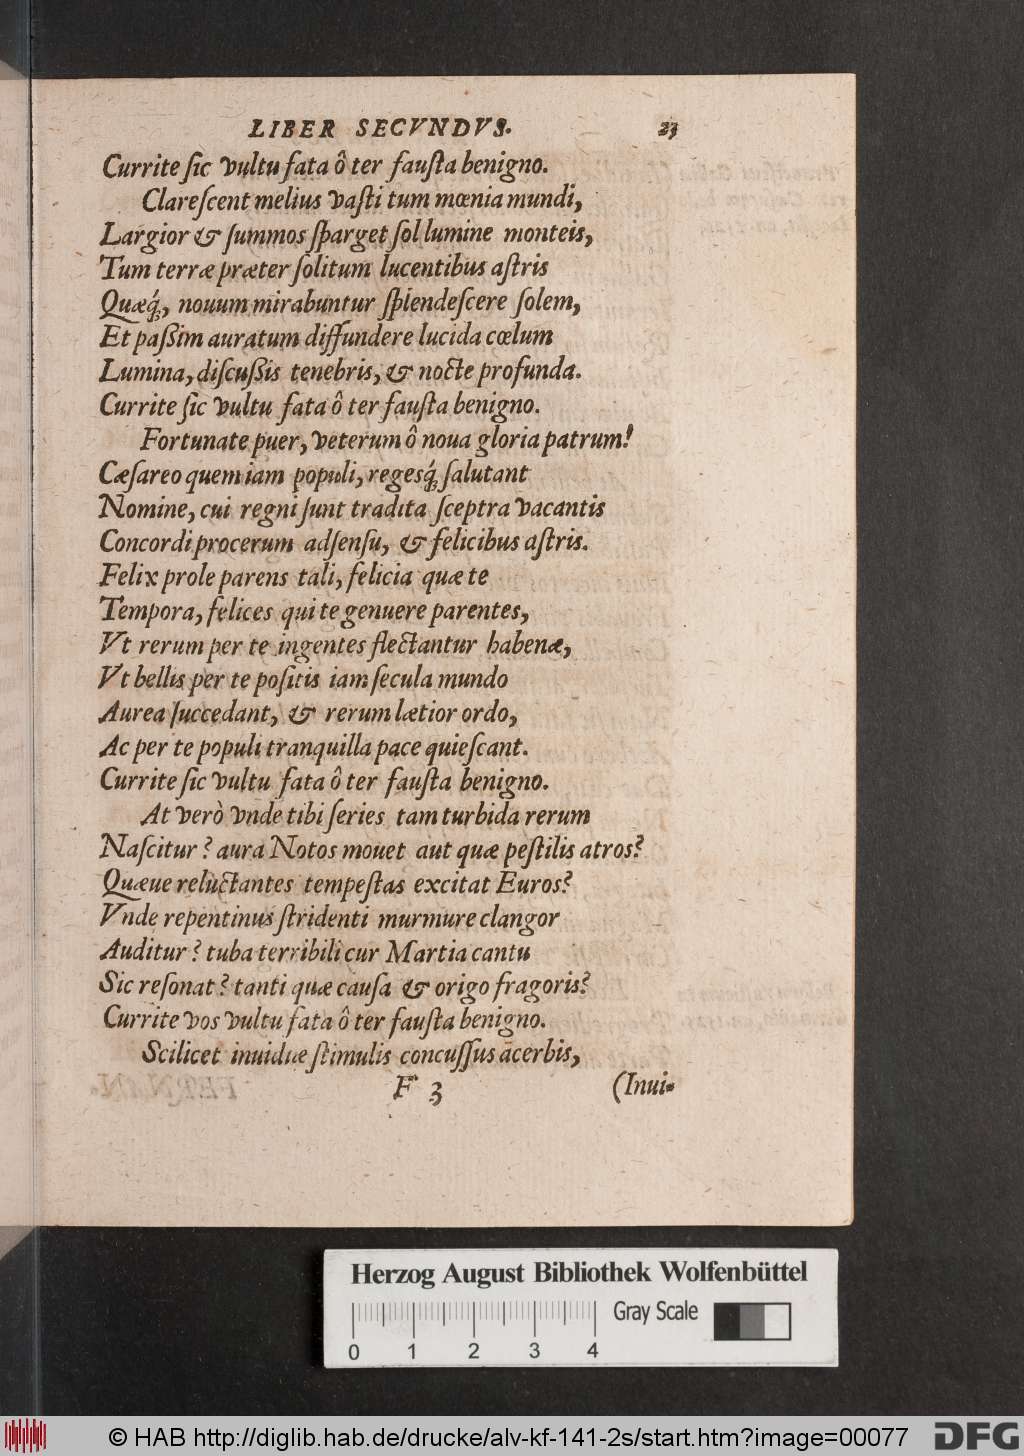 LIBER SECVNDVS. 23
Currite ſic vultu fata ô ter fauſta benigno.
Clareſcent melius vaſti tum mœnia mundi,
Largior & ſummos ſparget ſol lumine monteis,
Tum terræ præter ſolitum lucentibus aſtris
Quæq́, nouum mirabuntur ſplendeſcere ſolem,
Et paßim auratum diffundere lucida cœlum
Lumina, diſcußis tenebris, & nocte profunda.
Currite ſic vultu fata ô ter fauſta benigno.
Fortunate puer, veterum ô noua gloria patrum!
Cæſareo quem iam populi, regesq́ ſalutant
Nomine, cui regni ſunt tradita ſceptra vacantis
Concordi procerum adſenſu, & felicibus aſtris.
Felix prole parens tali, felicia quæ te
Tempora, felices qui te genuere parentes,
Vt rerum per te ingentes flectantur habenæ,
Vt bellis per te poſitis iam ſecula mundo
Aurea ſuccedant, & rerum lætior ordo,
Ac per te populi tranquilla pace quieſcant.
Currite ſic vultu fata ô ter fauſta benigno.
At verò vnde tibi ſeries tam turbida rerum
Naſcitur? aura Notos mouet aut quæ peſtilis atros?
Quæue reluctantes tempeſtas excitat Euros?
Vnde repentinus ſtridenti murmure clangor
Auditur? tuba terribili cur Martia cantu
Sic reſonat? tanti quæ cauſa & origo fragoris?
Currite vos vultu fata ô ter fauſta benigno.
Scilicet inuidiæ ſtimulis concuſſus acerbis,
F 3 (Inui-
Herzog August Bibliothek Wolfenbüttel
Gray Scale
0 1 2 3 4
© HAB http://diglib.hab.de/drucke/alv-kf-141-2s/start.htm?image=00077
DFG